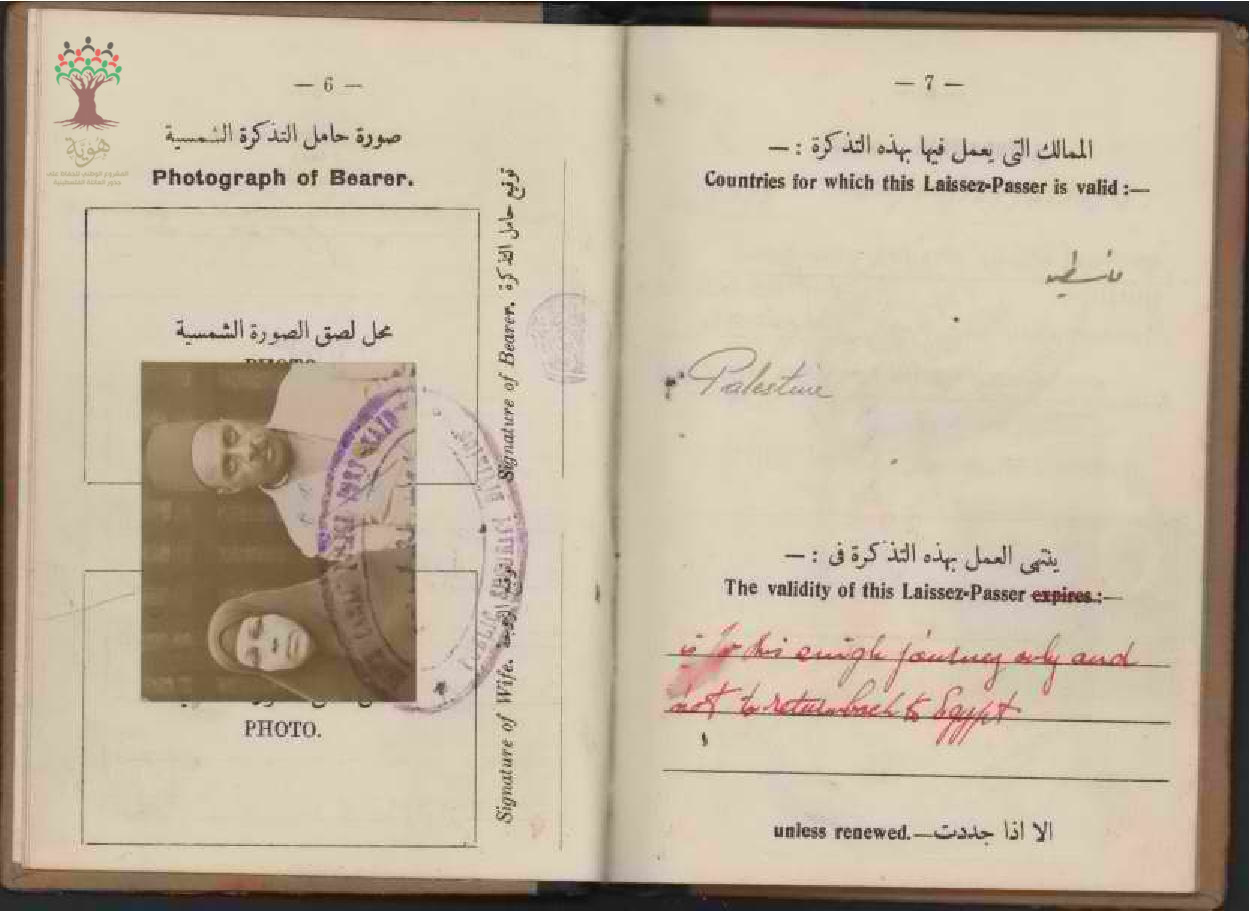 هوية
المشروع الوطني للحفاظ على
جذور العائلة الفلسطينية
— 6 —
صورة حامل التذكرة الشمسية
Photograph of Bearer.
محل لصق الصورة الشمسية
PHOTO
PHOTO.
توقيع حامل التذكرة
Signature of Bearer.
Signature of Wife.
— 7 —
الممالك التى يعمل فيها بهذه التذكرة : —
Countries for which this Laissez-Passer is valid :—
فلسطين
Palestine
ينتهى العمل بهذه التذكرة فى : —
The validity of this Laissez-Passer expires :—
is for this single journey only and
not to return back to Egypt
unless renewed.—الا اذا جددت